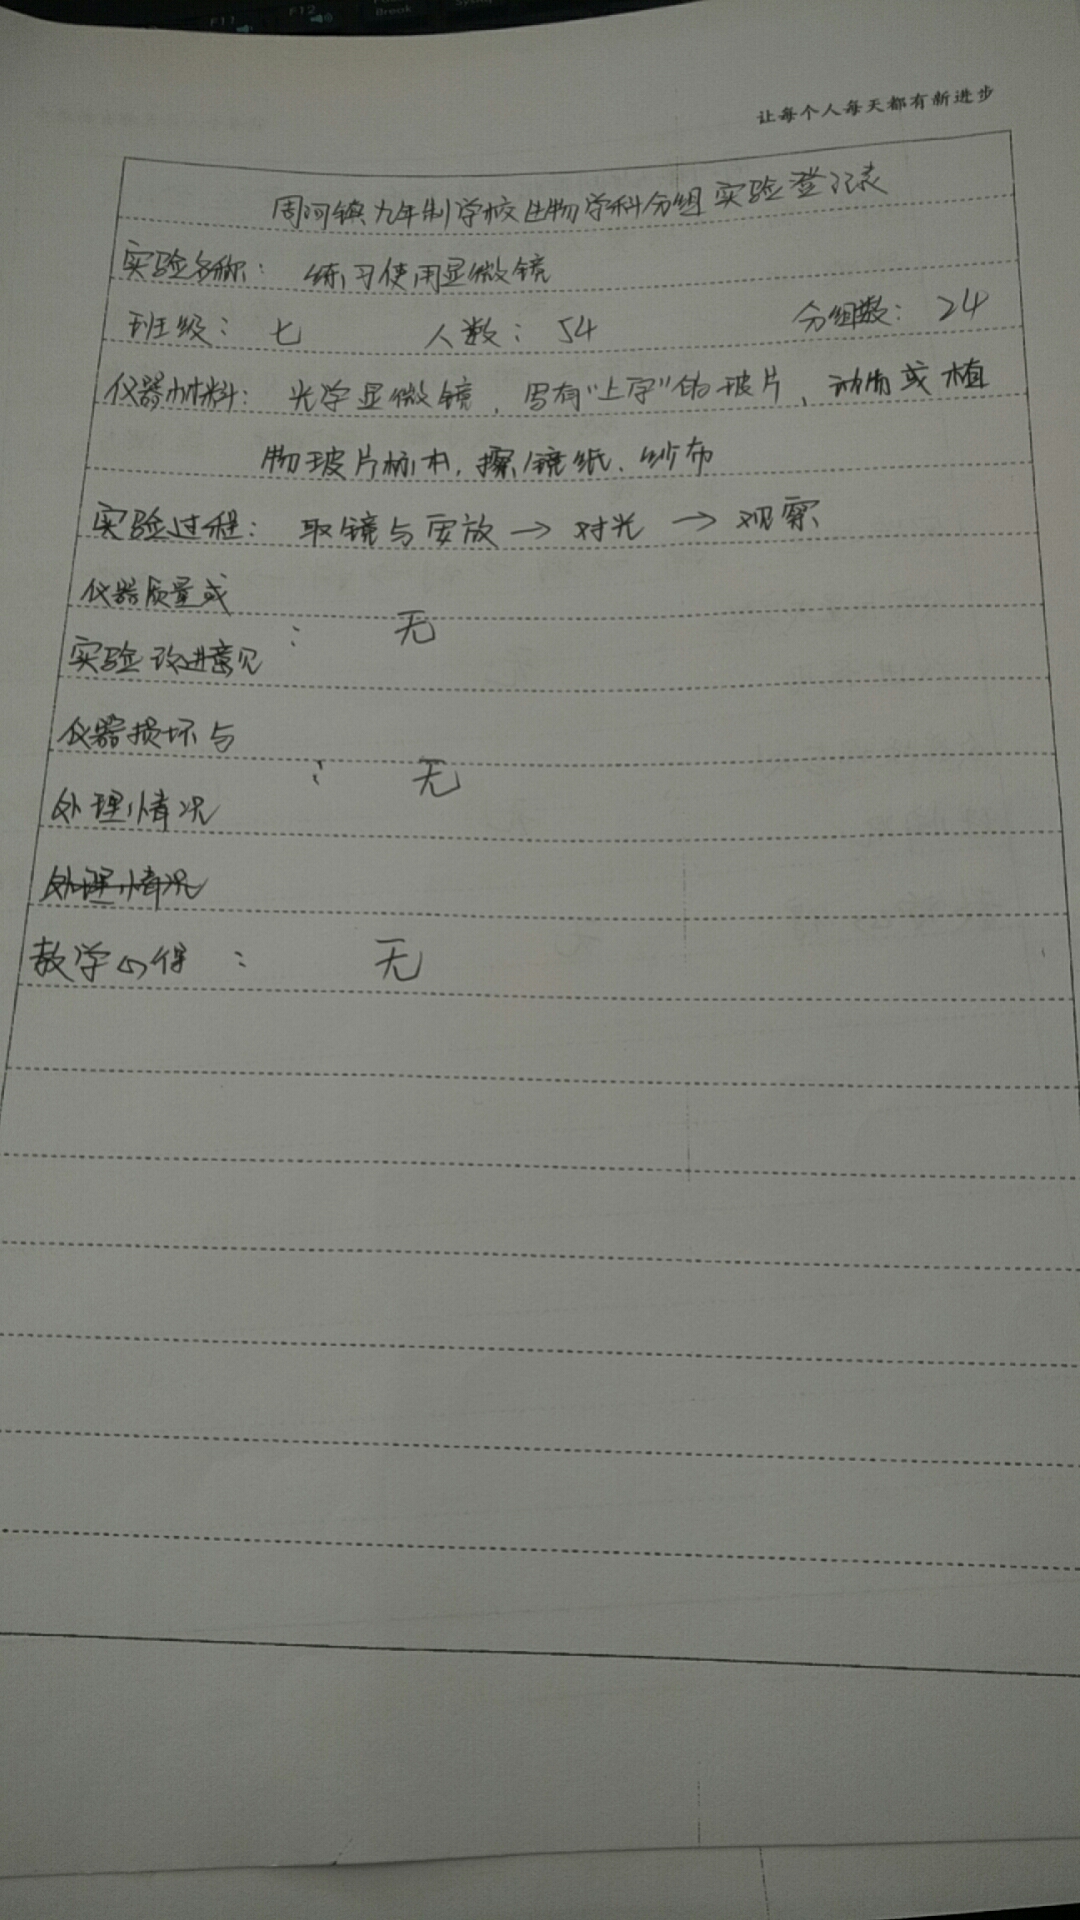 让每个人每天都有新进步
周河镇九年制学校生物学科分组实验登记表
实验名称: 练习使用显微镜
班级: 七 人数: 54 分组数: 24
仪器材料: 光学显微镜、写有“上字”的玻片、动物或植
物玻片标本, 擦镜纸、纱布
实验过程: 取镜与安放→对光→观察
仪器质量或
实验改进意见 : 无
仪器损坏与
处理情况 : 无
处理情况
教学心得 : 无